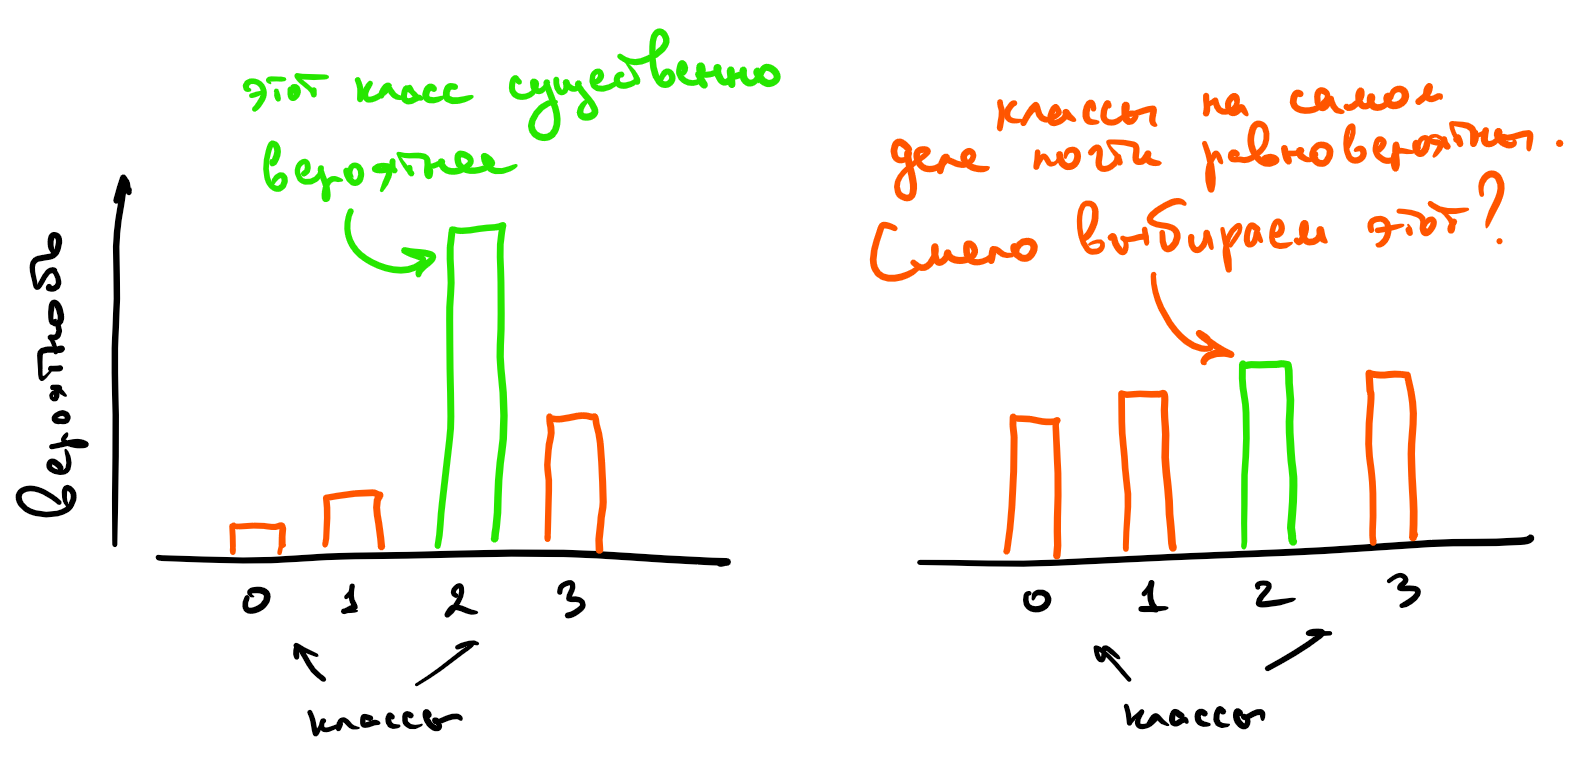 этот класс существенно
вероятнее
вероятность
0 1 2 3
классы
классы на самом
деле почти равновероятны.
Смело выбираем этот?
0 1 2 3
классы